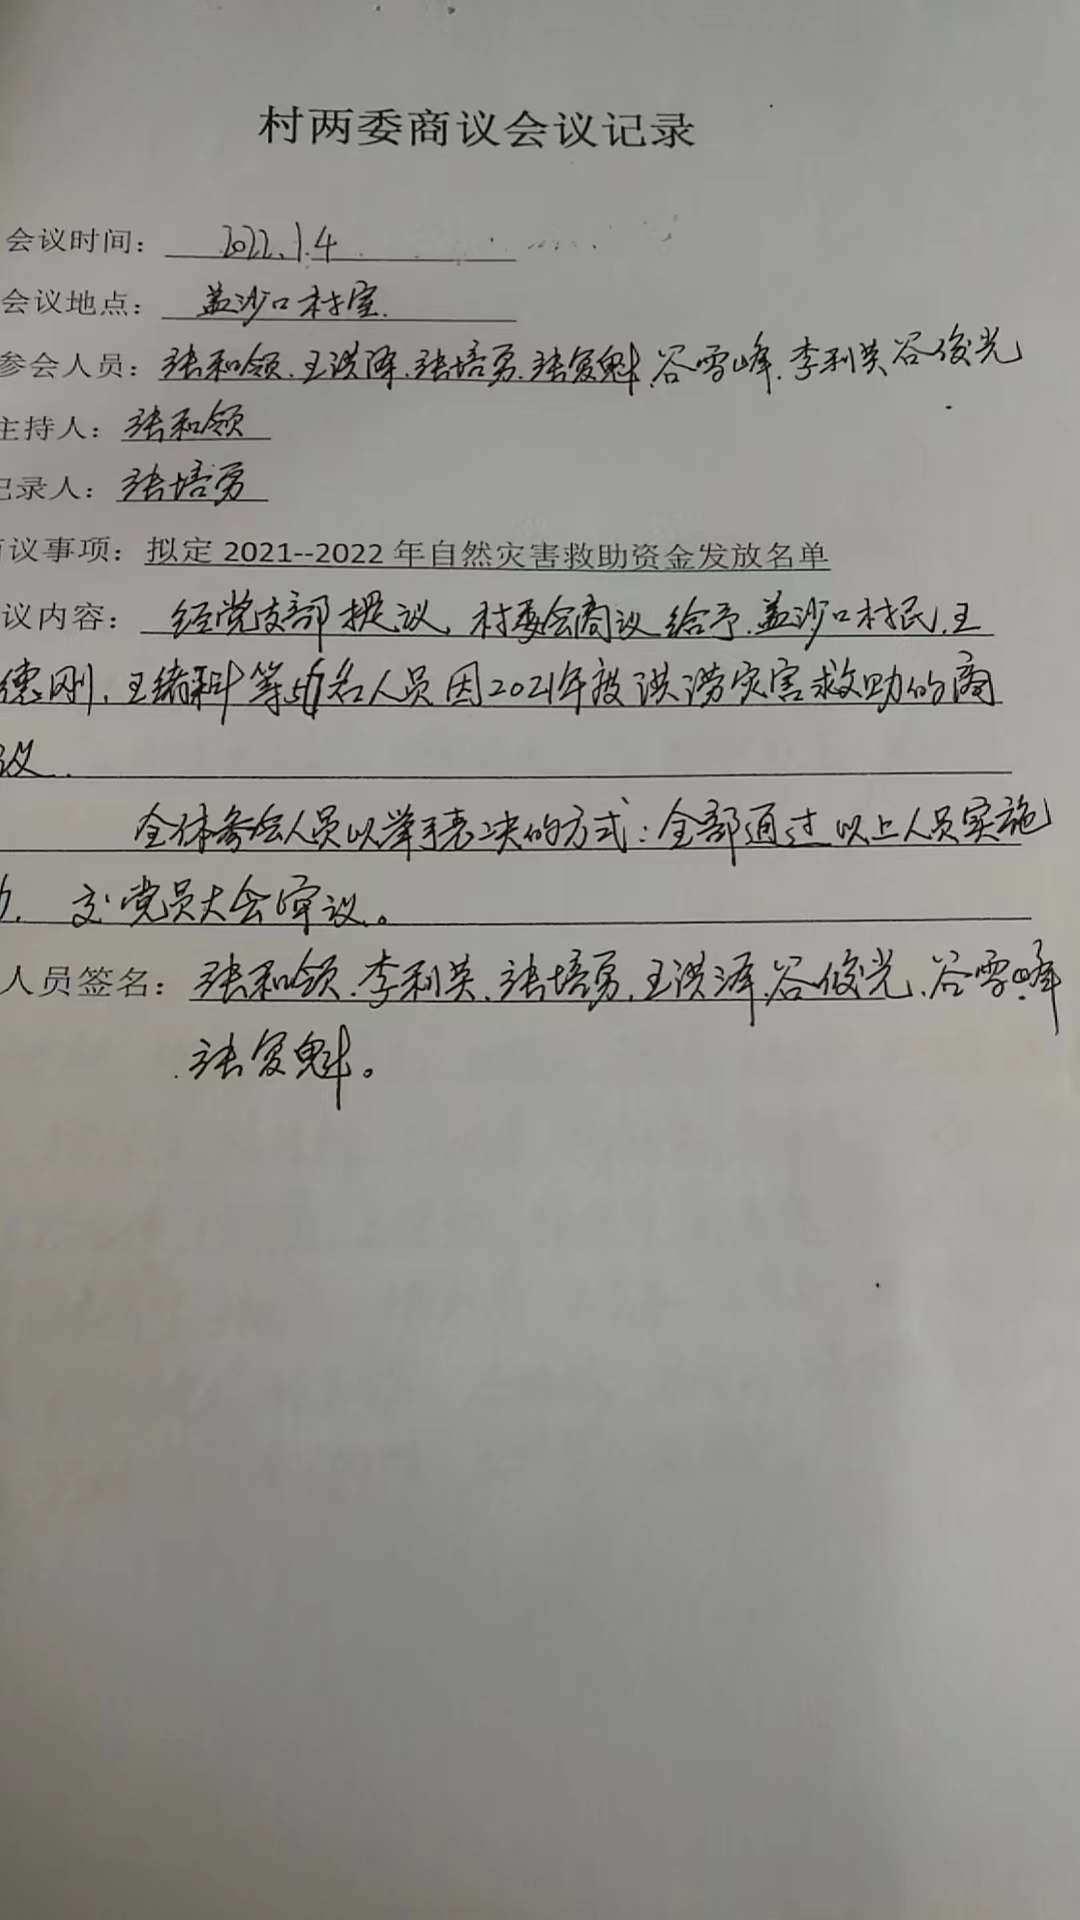 村两委商议会议记录
会议时间：2022.1.4
会议地点：盖沙口村室.
参会人员：张和领.王洪泽.张培勇.张复魁.谷雪峰.李利英谷俊光
主持人：张和领
记录人：张培勇
商议事项：拟定 2021--2022 年自然灾害救助资金发放名单
议内容：经党支部提议、村委会商议给予.盖沙口村民.王
德刚.王绪科等 名人员因2021年被洪涝灾害救助的商
议.
全体参会人员以举手表决的方式：全部通过以上人员实施
交党员大会审议。
人员签名：张和领.李利英.张培勇.王洪泽.谷俊光.谷雪峰
.张复魁。